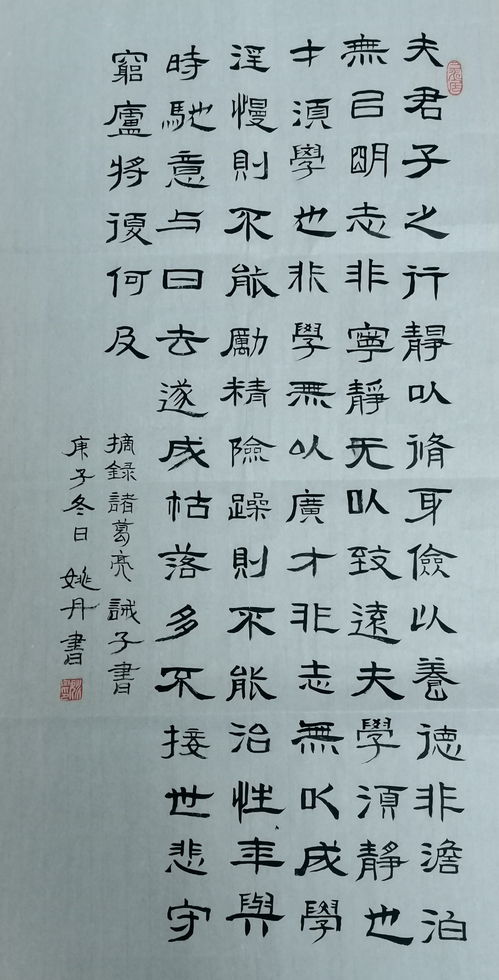 夫君子之行靜以脩身儉以養德非澹泊
無以明志非寧靜无以致遠夫學須靜也
才須學也非學無以廣才非志無以成學
淫慢則不能勵精險躁則不能治性年與
時馳意与日去遂成枯落多不接世悲守
窮廬將復何及
摘録諸葛亮誡子書
庚子冬日姚丹書